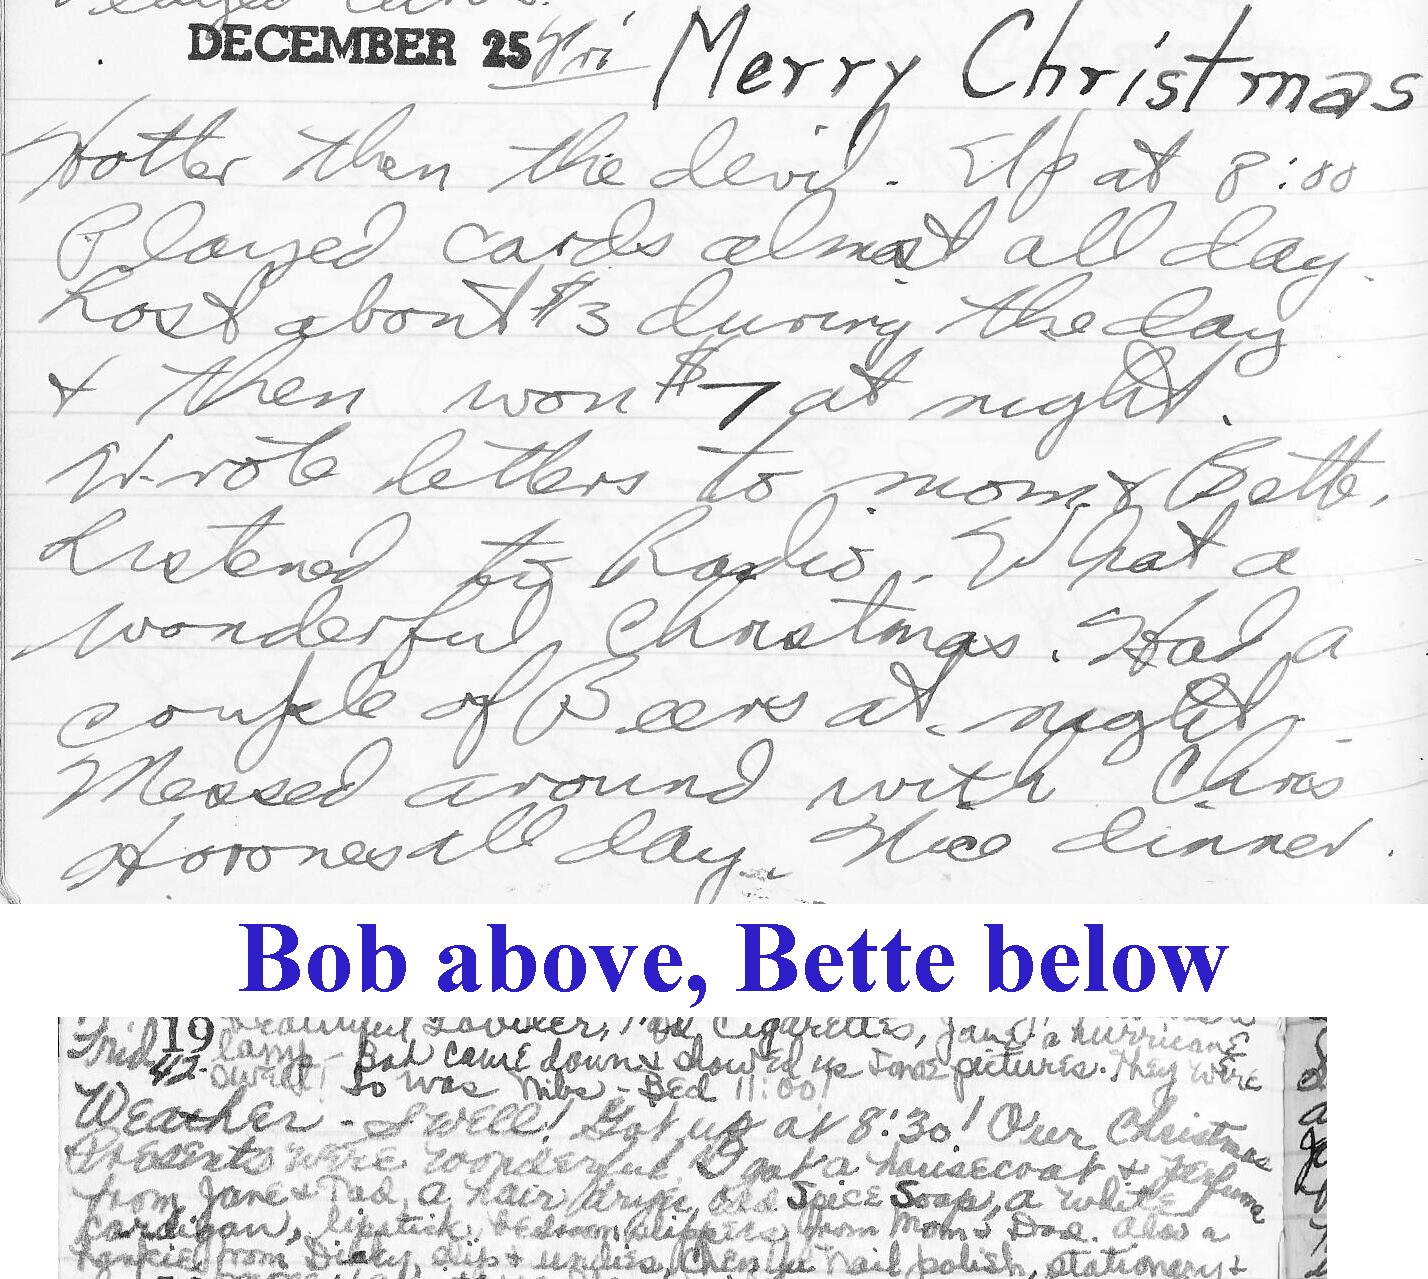 Played
DECEMBER 25 Fri Merry Christmas
Hotter then the devil. Up at 8:00
Played cards almost all day.
Lost about $3 during the day
& then won $7 at night.
Wrote letters to mom & Bette.
Listened to Radio. What a
wonderful Christmas. Had a
couple of Beers at night.
Messed around with Chris
Horones all day. Nice dinner.
Bob above, Bette below
19 Beautiful Cigarettes, Jane a hurricane
Frid 42 lamp - Bob came down & showed us some pictures. They were
swell! So was Nibs - Bed 11:00!
Weather - Swell! Got up at 8:30! Our Christmas
Presents were wonderful. I got a housecoat & perfume
from Jane & Tad, a hair old Spice Soap, a white
cardigan, lipstick, bedroom slippers from Mom & Dad. Also a
hankie from slip & undies, nail polish, stationery &